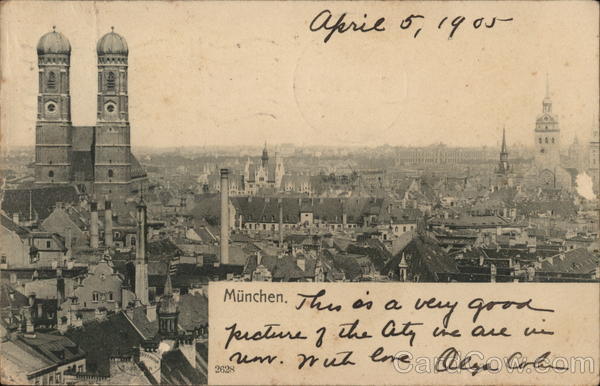 April 5, 1905
München.
This is a very good
picture of the City we are in
now. With love
2628
CardCow.com